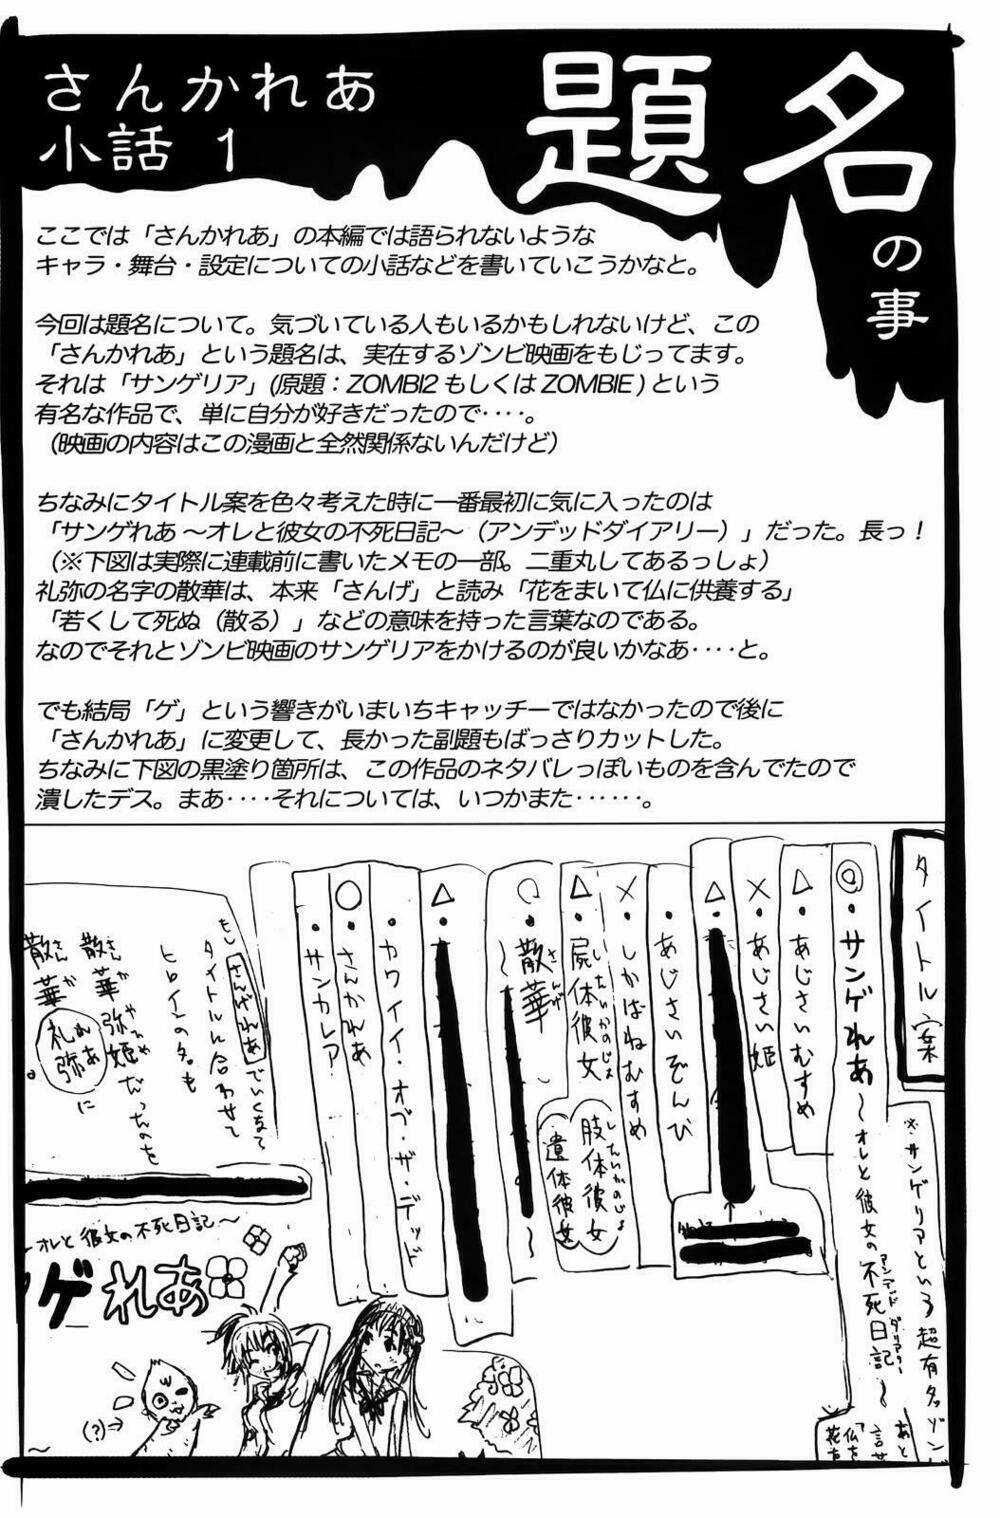 さんかれあ
小話 1
題名
の事
ここでは「さんかれあ」の本編では語られないような
キャラ・舞台・設定についての小話などを書いていこうかなと。
今回は題名について。気づいている人もいるかもしれないけど、この
「さんかれあ」という題名は、実在するゾンビ映画をもじってます。
それは「サンゲリア」(原題：ZOMBI2 もしくは ZOMBIE ) という
有名な作品で、単に自分が好きだったので‥‥。
（映画の内容はこの漫画と全然関係ないんだけど）
ちなみにタイトル案を色々考えた時に一番最初に気に入ったのは
「サンゲれあ ～オレと彼女の不死日記～（アンデッドダイアリー）」だった。長っ！
（※下図は実際に連載前に書いたメモの一部。二重丸してあるっしょ）
礼弥の名字の散華は、本来「さんげ」と読み「花をまいて仏に供養する」
「若くして死ぬ（散る）」などの意味を持った言葉なのである。
なのでそれとゾンビ映画のサンゲリアをかけるのが良いかなあ‥‥と。
でも結局「ゲ」という響きがいまいちキャッチーではなかったので後に
「さんかれあ」に変更して、長かった副題もばっさりカットした。
ちなみに下図の黒塗り箇所は、この作品のネタバレっぽいものを含んでたので
潰したデス。まあ‥‥それについては、いつかまた‥‥‥。
タイトル案
※サンゲリアという超有名ゾン
◎・サンゲれあ～オレと彼女の不死日記～
アンデッドダイアリー
△・あじさいむすめ
×・あじさい姫
△・
・あじさいぞんび
×・しかばねむすめ
△・屍体彼女
したいかのじょ
肢体彼女
遺体彼女
○・散華～
さんげ
△・
・カワイイ・オブ・ザ・デッド
○・さんかれあ
・サンカレア
さんげれあ でいくなら
タイトルに合わせて
ヒロインの名も
散華弥姫だったのを
散華礼弥に
さんか
れあ
～オレと彼女の不死日記～
ゲれあ
(?)→
あと
仏を
花を